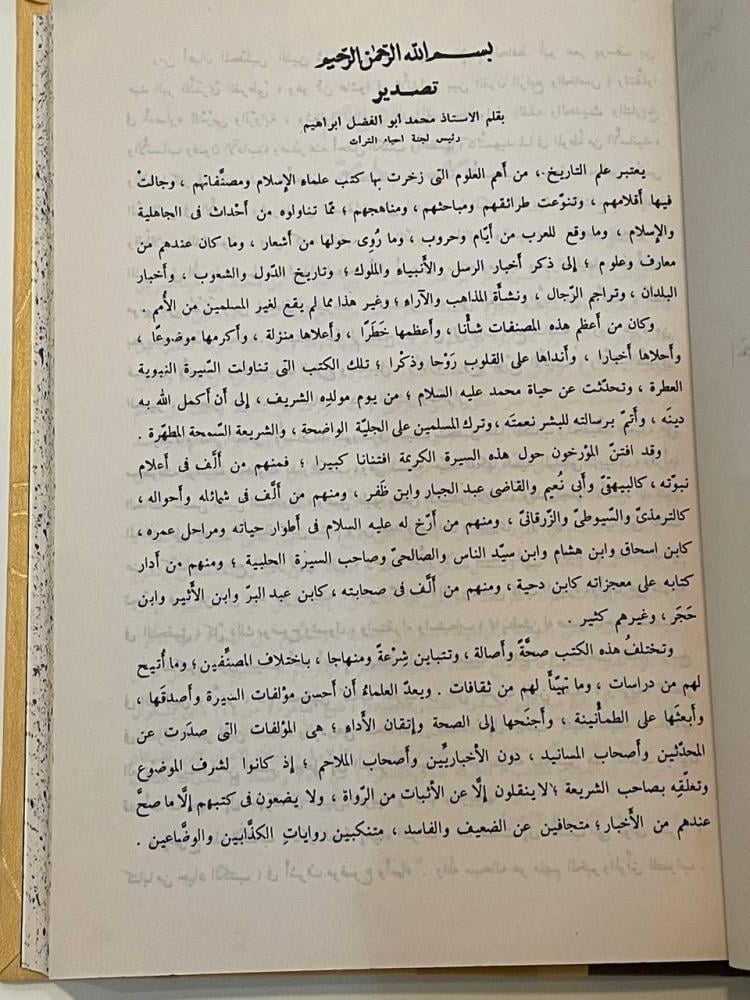 بسم الله الرحمن الرحيم
تصدير
بقلم الاستاذ محمد ابو الفضل ابراهيم
رئيس لجنة احياء التراث
يعتبر علم التاريخ، من أهم العلوم التى زخرت بها كتب علماء الإسلام ومصنَّفاتهم ، وجالتْ
فيها أقلامهم ، وتنوّعت طرائقهم ومباحثهم ، ومناهجهم ؛ ممّا تناولوه من أحْداث فى الجاهلية
والإِسلام ، وما وقع للعرب من أيّام وحروب ، وما رُوِى حولها من أشعار ، وما كان عندهم من
معارف وعلوم ؛ إلى ذكر أخبار الرسل والأَنبياء والملوك ؛ وتاريخ الدّول والشعوب ، وأخبار
البلدان ، وتراجم الرّجال ، ونشأة المذاهب والآراء ؛ وغير هذا مما لم يقع لغير المسلمين من الأُمم .
وكان من أعظم هذه المصنفات شأنا ، وأعظمها خَطَرًا ، وأعلاها منزلة ، وأكرمها موضوعًا ،
وأحلاها أخبارًا ، وأنداها على القلوب رَوْحا وذكْرا ؛ تلك الكتب التى تناولت السّيرة النبوية
العطرة ، وتحدّثت عن حياة محمد عليه السلام ؛ من يوم مولدِه الشريف ، إلى أن أكمل الله به
دينَه ، وأتمّ برسالته للبشر نعمتَه ، وترك المسلمين على الجليّة الواضحة ، والشريعة السّمحة المطهّرة .
وقد افتنّ المؤرخون حول هذه السيرة الكريمة افتنانا كبيرا ؛ فمنهم من ألَّف فى أعلام
نبوّته ، كالبيهقىّ وأبى نُعيم والقاضى عبد الجبار وابن ظَفر ، ومنهم من ألَّف فى شمائله وأحواله ،
كالترمذىّ والسّيوطىّ والزّرقانىّ ، ومنهم من أرّخ له عليه السلام فى أطوار حياته ومراحل عمره ،
كابن اسحاق وابن هشام وابن سيّد الناس والصالحىّ وصاحب السيرة الحلبية ؛ ومنهم من أدار
كتابه على معجزاته كابن دحية ، ومنهم من ألَّف فى صحابته ، كابن عبد البرّ وابن الأَثير وابن
حَجَر ، وغيرهم كثير .
وتختلفُ هذه الكتب صحَّةً وأصالة ، وتتباين شِرْعةً ومنهاجا ، باختلاف المصنِّفين ؛ وما أُتيح
لهم من دراسات ، وما تهيّأ لهم من ثقافات . ويعدّ العلماءُ أن أحسن مؤلفات السّيرة وأصدقَها ،
وأبعثَها على الطمأنينة ، وأجنَحها إلى الصحة وإتقان الأَداء ؛ هى المؤلفات التى صدَرت عن
المحدّثين وأصحاب المسانيد ، دون الأخباريِّين وأصحاب الملاحم ؛ إذ كانوا لشرف الموضوع
وتعلّقِه بصاحب الشريعة ؛ لا ينقلون إلَّا عن الأثبات من الرّواة ، ولا يضعون فى كتبهم إلَّا ما صحَّ
عندهم من الأَخبار ؛ متجافين عن الضعيف والفاسد ، متنكبين رواياتِ الكذَّابين والوضَّاعين .